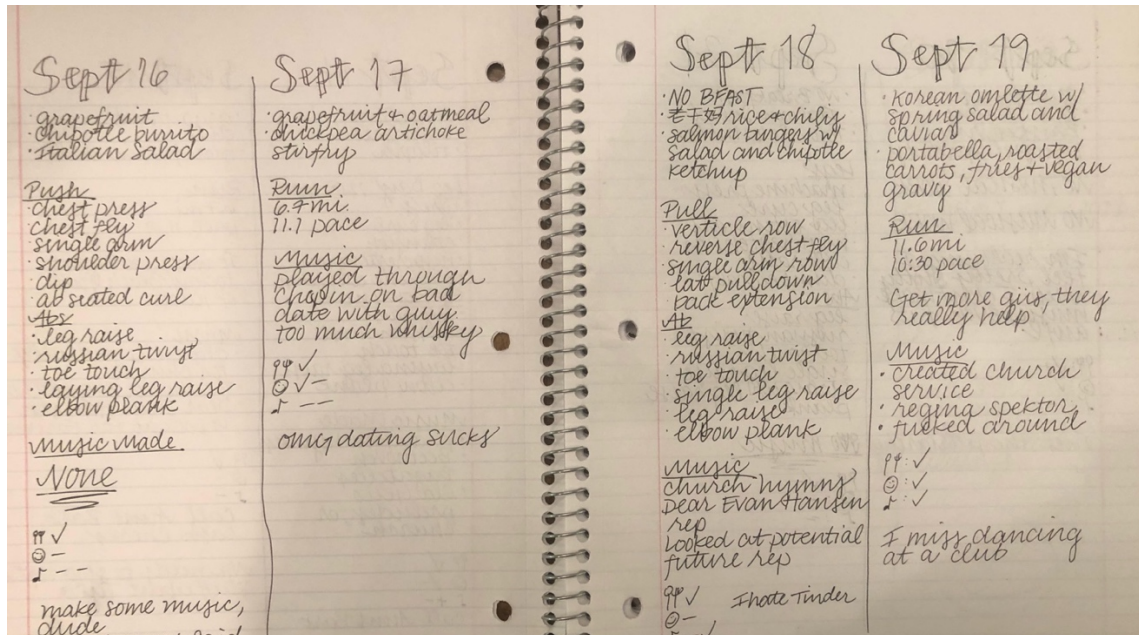 Sept 16
· grapefruit
· chipotle burrito
· Italian Salad
Push
· chest press
· chest fly
· single arm
· shoulder press
· dip
· ab seated curl
Abs
· leg raise
· russian twist
· toe touch
· laying leg raise
· elbow plank
Music Made
None
✓
☺ –
♪ – –
make some music,
dude
Sept 17
· grapefruit + oatmeal
· chickpea artichoke
stirfry
Run
11.1 pace
Music
played through
Chopin on bad
date with guy.
too much whisky
✓
☺ ✓ –
♪ – –
omg dating sucks
Sept 18
· NO BFAST
rice + chilis
· salmon burgers w/
salad and chipotle
ketchup
Pull
· verticle row
· reverse chest fly
· single arm row
· lat pulldown
· back extension
Ab
· leg raise
· russian twist
· toe touch
· single leg raise
· leg raise
· elbow plank
Music
church hymns
Dear Evan Hansen
rep
looked at potential
future rep
✓ I hate Tinder
☺ –
Sept 19
· Korean omlette w/
spring salad and
caviar
· portabella, roasted
carrots, fries + vegan
gravy
Run
11.6 mi
10:30 pace
Get more gus, they
really help
Music
· created church
service
· regina spektor
· fucked around
: ✓
☺ : ✓
♪ : ✓
I miss dancing
at a club